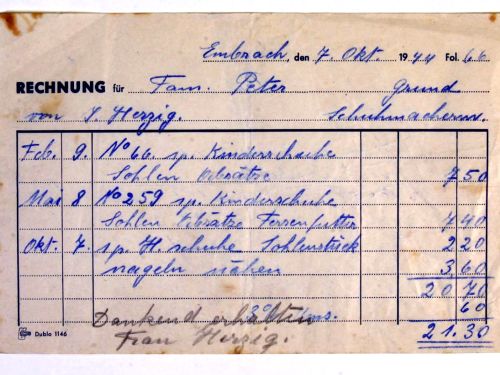 Embrach, den 7. Okt. 1944 Fol. 66
RECHNUNG für Fam. Peter Grund
von S. Herzig. Schuhmacherm.
Feb. 9. No 66. sp. Kinderschuhe
Sohlen Absätze 7 50
Mai 8 No 259 sp. Kinderschuhe
Sohlen Absätze Fersenfutter 7 40
Okt. 7. sp. H. schuhe Sohlenstück
nageln nähen 2 20
3 60
20 70
3% ums. 60
Dankend erhalten 21.30
Frau Herzig.
Dublo 1146